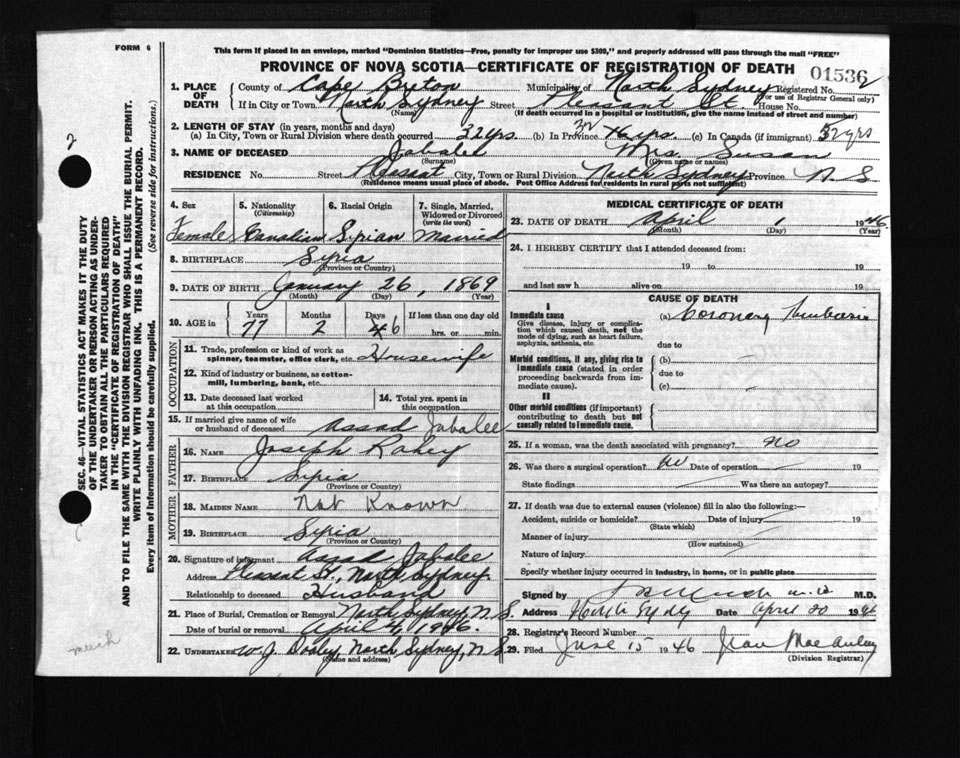 FORM 6
This form if placed in an envelope, marked "Dominion Statistics—Free, penalty for improper use $300," and properly addressed will pass through the mail "FREE"
PROVINCE OF NOVA SCOTIA—CERTIFICATE OF REGISTRATION OF DEATH
01536
1. PLACE OF DEATH County of Cape Breton Municipality of North Sydney Registered No. 2
(For use of Registrar General only)
If in City or Town North Sydney Street Pleasant St. House No.
(Name) (If death occurred in a hospital or institution, give the name instead of street and number)
2. LENGTH OF STAY (in years, months and days)
(a) In City, Town or Rural Division where death occurred 32 yrs. (b) In Province 32 yrs. (c) In Canada (if immigrant) 32 yrs
3. NAME OF DECEASED Jabalee Mrs. Susan
(Surname) (Given name or names)
RESIDENCE No. Street Pleasant City, Town or Rural Division North Sydney Province N S
(Residence means usual place of abode. Post Office Address for residents in rural parts not sufficient)
4. Sex Female
5. Nationality (Citizenship) Canadian
6. Racial Origin Syrian
7. Single, Married, Widowed or Divorced (write the word) Married
8. BIRTHPLACE Syria
(Province or Country)
9. DATE OF BIRTH January 26, 1869
(Month) (Day) (Year)
10. AGE in Years Months Days If less than one day old
77 2 hrs. or min.
OCCUPATION
11. Trade, profession or kind of work as spinner, teamster, office clerk, etc. Housewife
12. Kind of industry or business, as cotton-mill, lumbering, bank, etc.
13. Date deceased last worked at this occupation
14. Total yrs. spent in this occupation
15. If married give name of wife or husband of deceased Assad Jabalee
FATHER
16. NAME Joseph Rahey
17. BIRTHPLACE Syria
(Province or Country)
MOTHER
18. MAIDEN NAME Not Known
19. BIRTHPLACE Syria
(Province or Country)
20. Signature of informant Assad Jabalee
Address Pleasant St., North Sydney.
Relationship to deceased Husband
21. Place of Burial, Cremation or Removal North Sydney, N.S.
Date of burial or removal April 4, 1946.
22. UNDERTAKER W. J. Dooley, North Sydney, N.S.
(Name and address)
MEDICAL CERTIFICATE OF DEATH
23. DATE OF DEATH April 1 1946
(Month) (Day) (Year)
24. I HEREBY CERTIFY that I attended deceased from:
19 to 19
and last saw h alive on 19
CAUSE OF DEATH
I
Immediate cause (a) Coronary
Give disease, injury or complication which caused death, not the mode of dying, such as heart failure, asphyxia, asthenia, etc.
due to
Morbid conditions, if any, giving rise to immediate cause (stated in order proceeding backwards from immediate cause).
(b)
due to
(c)
II
Other morbid conditions (if important) contributing to death but not causally related to immediate cause.
25. If a woman, was the death associated with pregnancy? no
26. Was there a surgical operation? no Date of operation 19
State findings Was there an autopsy?
27. If death was due to external causes (violence) fill in also the following:—
Accident, suicide or homicide? Date of injury 19
(State which)
Manner of injury
(How sustained)
Nature of injury
Specify whether injury occurred in industry, in home, or in public place
Signed by M.D.
Address North Sydney Date April 20 1946
28. Registrar's Record Number
29. Filed June 15 1946 Jean MacAulay
(Division Registrar)
2
SEC. 46—VITAL STATISTICS ACT MAKES IT THE DUTY
OF THE UNDERTAKER OR PERSON ACTING AS UNDER-
TAKER TO OBTAIN ALL THE PARTICULARS REQUIRED
IN THE "CERTIFICATE OF REGISTRATION OF DEATH"
AND TO FILE THE SAME WITH THE DIVISION REGISTRAR WHO SHALL ISSUE THE BURIAL PERMIT.
WRITE PLAINLY WITH UNFADING INK. THIS IS A PERMANENT RECORD.
Every item of information should be carefully supplied. (See reverse side for instructions.)